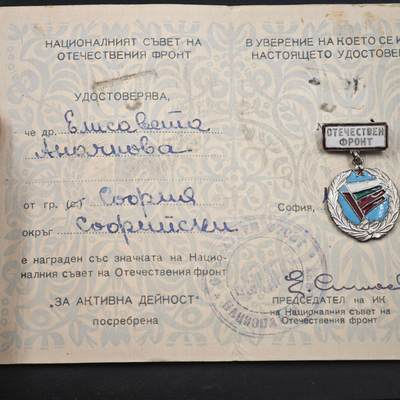 НАЦИОНАЛНИЯТ СЪВЕТ НА
ОТЕЧЕСТВЕНИЯ ФРОНТ
УДОСТОВЕРЯВА,
че др. Елисавета
от гр. (с.) София
окръг Софийски
е награден със значката на Нацио-
налния съвет на Отечествения фронт
„ЗА АКТИВНА ДЕЙНОСТ"
посребрена
В УВЕРЕНИЕ НА КОЕТО СЕ И
НАСТОЯЩЕТО УДОСТОВЕ
ОТЕЧЕСТВЕН
ФРОНТ
София,
ПРЕДСЕДАТЕЛ НА ИК
на Националния съвет на
Отечествения фронт